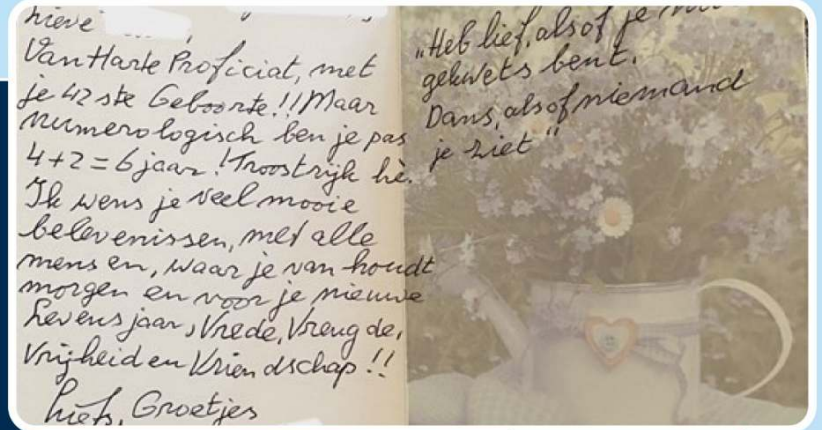 lieve
Van Harte Proficiat, met
je 42 ste Geboorte!! Maar
numerologisch ben je pas
4+2=6 jaar! Troostrijk hè.
Ik wens je veel mooie
belevenissen, met alle
mensen, waar je van houdt
morgen en voor je nieuwe
Levensjaar, Vrede, Vreugde,
Vrijheid en Vriendschap!!
Liefs, Groetjes
"Heb lief, alsof je
gekwets bent.
Dans, alsof niemand
je ziet"